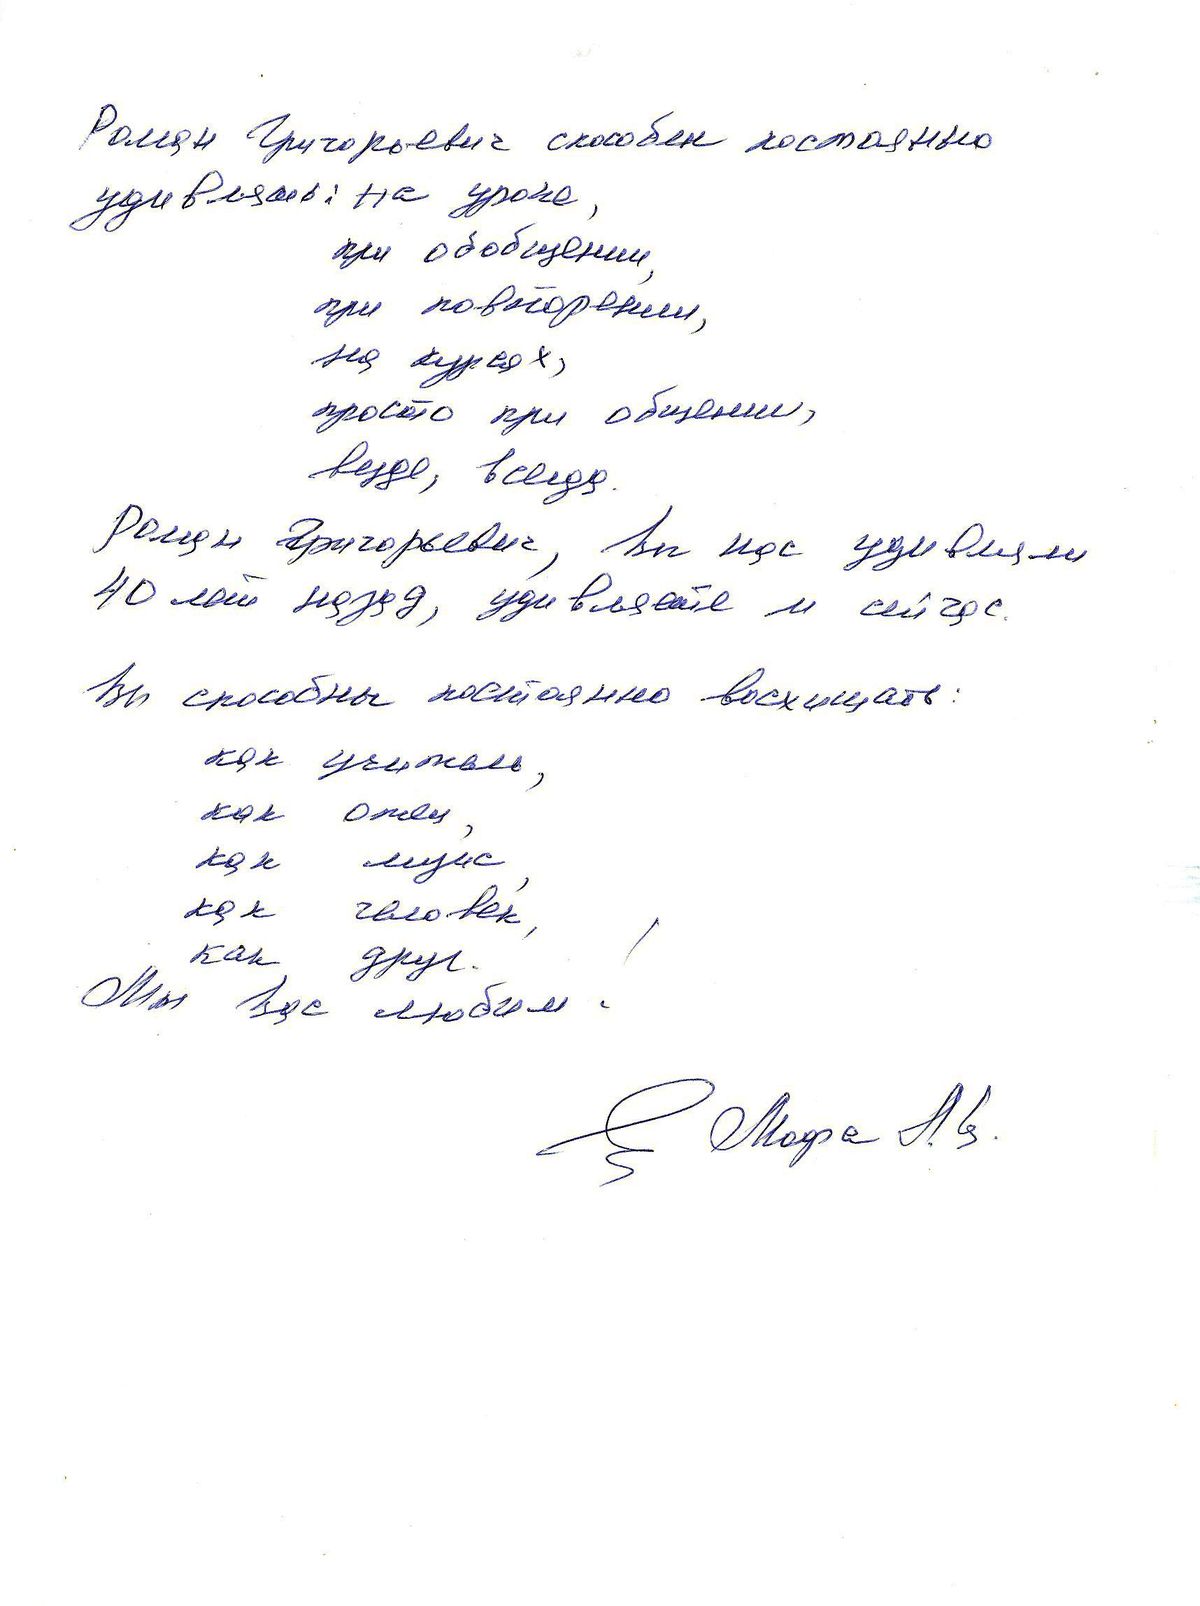 Роман Григорьевич способен постоянно
удивлять: на уроке,
при обобщении,
при повторении,
на курсах,
просто при общении,
везде, всегда.
Роман Григорьевич, Вы нас удивляли
40 лет назад, удивляете и сейчас.
Вы способны постоянно восхищать:
как учитель,
как отец,
как муж,
как человек,
как друг.
Мы Вас любим!